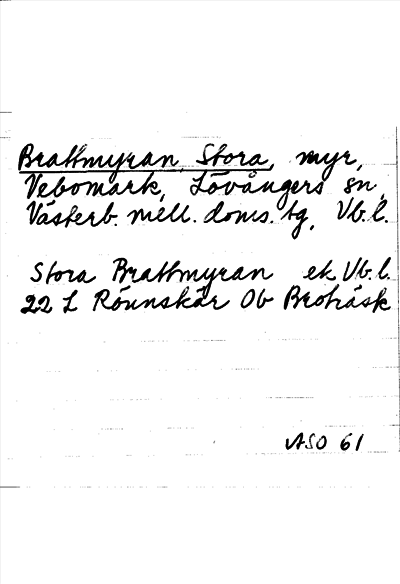 Brattmyran, Stora, myr,
Vebomark, Lövångers sn,
Västerb. mell. doms. tg, Vb.l.
Stora Brattmyran ek Vb.l.
22 L Rönnskär Ob Broträsk
ASO 61